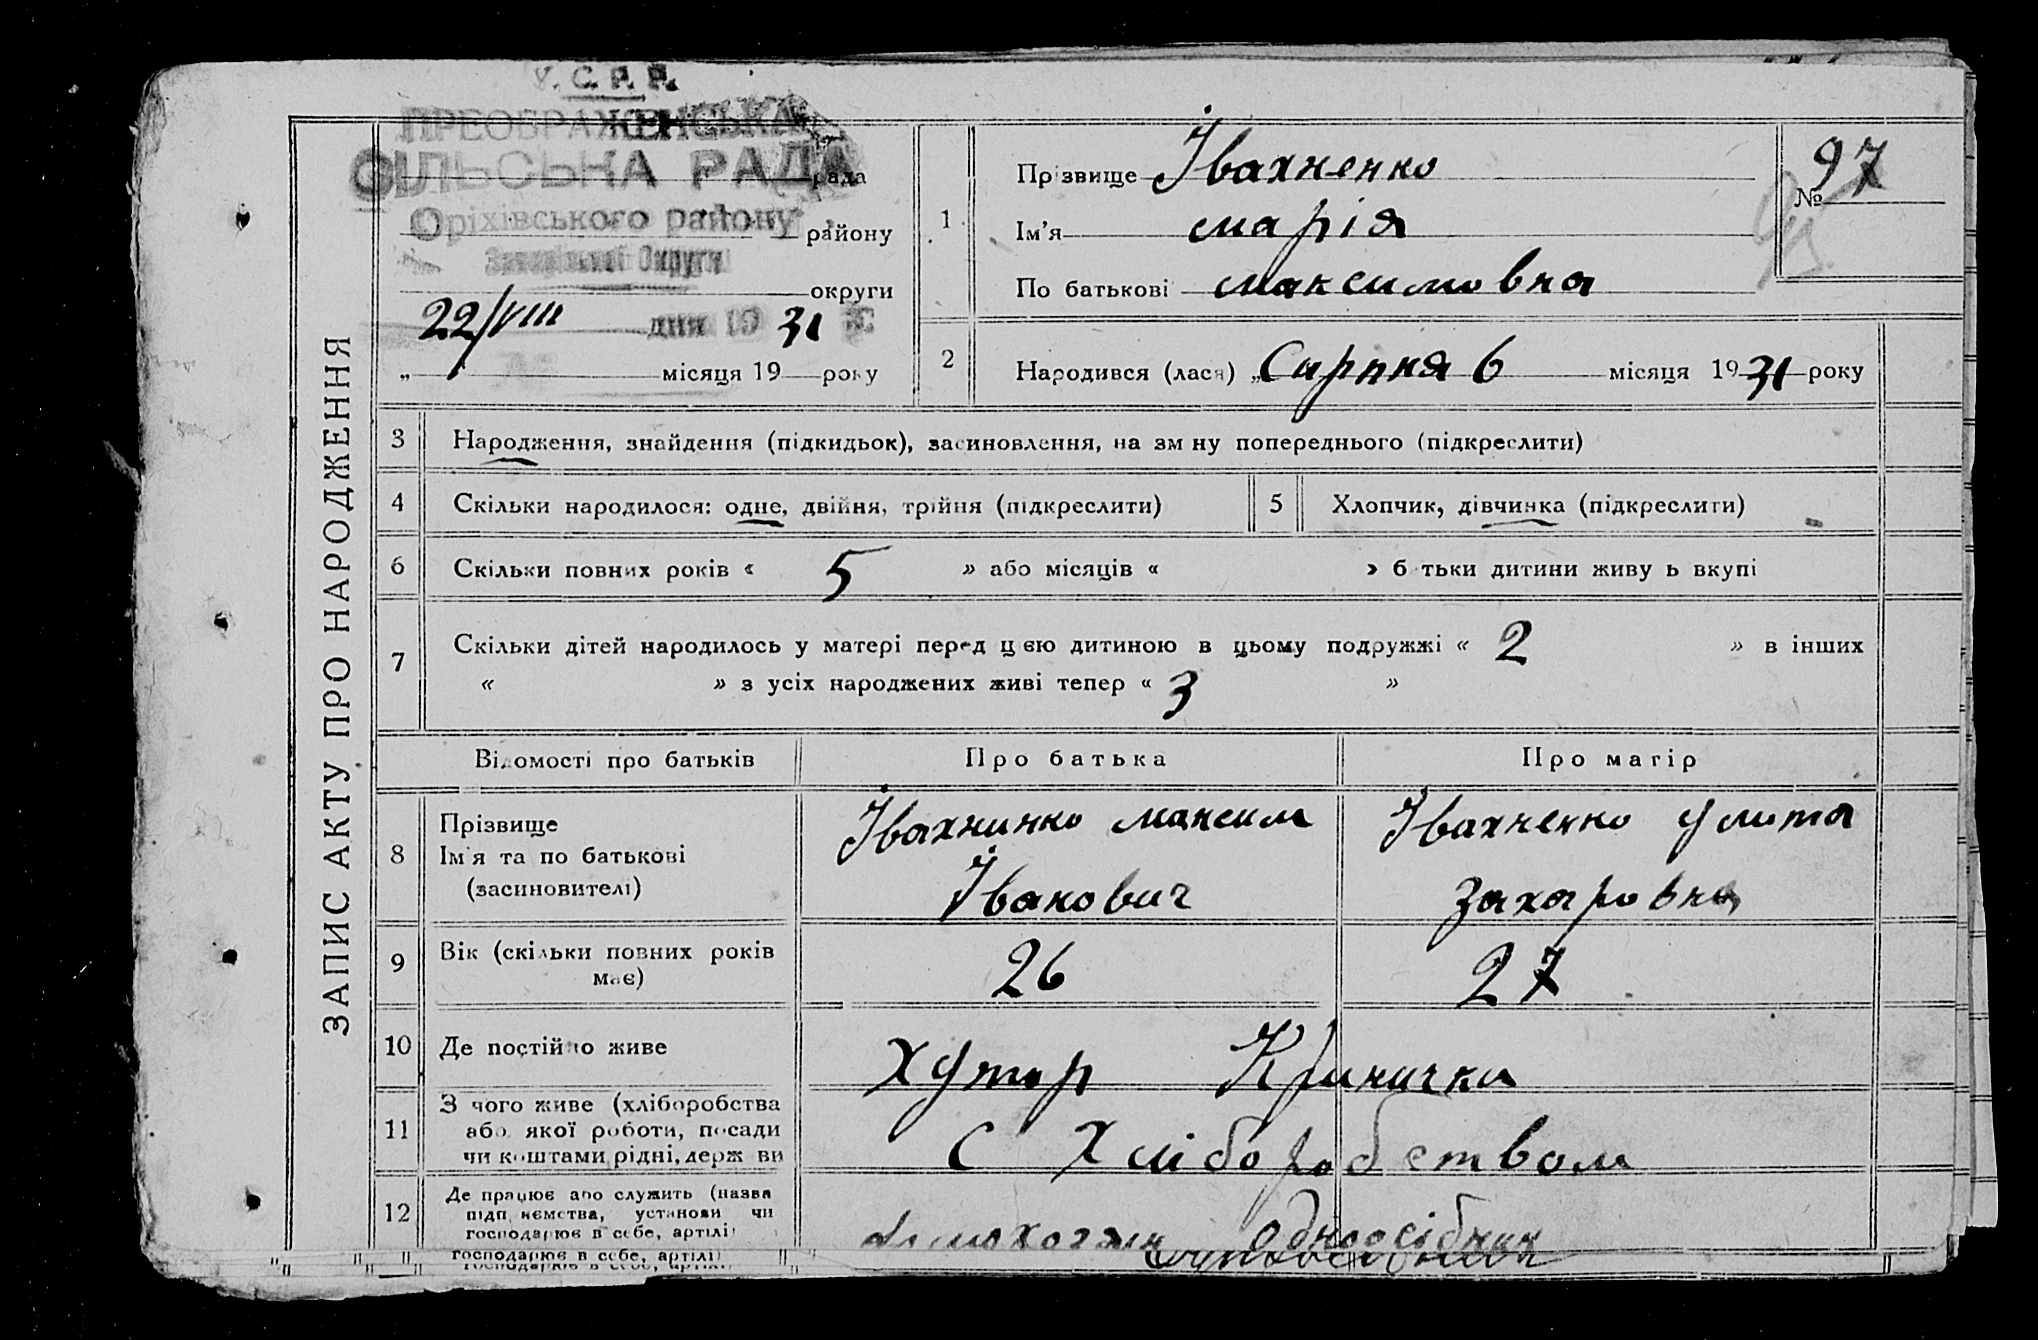 У. С. Р. Р.
ПРЕОБРАЖЕНСЬКА
СІЛЬСЬКА РАДА
рада
Оріхівського району
району
Округи
округи
22/VIII дня 19 31
„ місяця 19 року
1
Прізвище Івахненко
Ім'я марія
По батькові максимовна
№ 97
2
Народився (лася) „ Сирпня 6 місяця 19 31 року
ЗАПИС АКТУ ПРО НАРОДЖЕННЯ
3 Народження, знайдення (підкидьок), засиновлення, на зм ну попереднього (підкреслити)
4 Скільки народилося: одне, двійня, трійня (підкреслити)
5 Хлопчик, дівчинка (підкреслити)
6 Скільки повних років « 5 » або місяців « » б тьки дитини живу ь вкупі
7 Скільки дітей народилось у матері перед цією дитиною в цьому подружжі « 2 » в інших
« » з усіх народжених живі тепер « 3 »
Відомості про батьків
Про батька
Про матір
8
Прізвище
Ім'я та по батькові
(засиновителі)
Івахнинко максим
Іванович
Івахненко Улита
Захаровна
9
Вік (скільки повних років
має)
26
27
10 Де постійно живе
Хутор Криничка
11
З чого живе (хліборобства
або якої роботи, посади
чи коштами рідні, держ ви
С Хліборобством
12
Де працює або служить (назва
підп иємства, установи чи
господарює в себе, артілі
одноосібник
господарює в себе, артілі